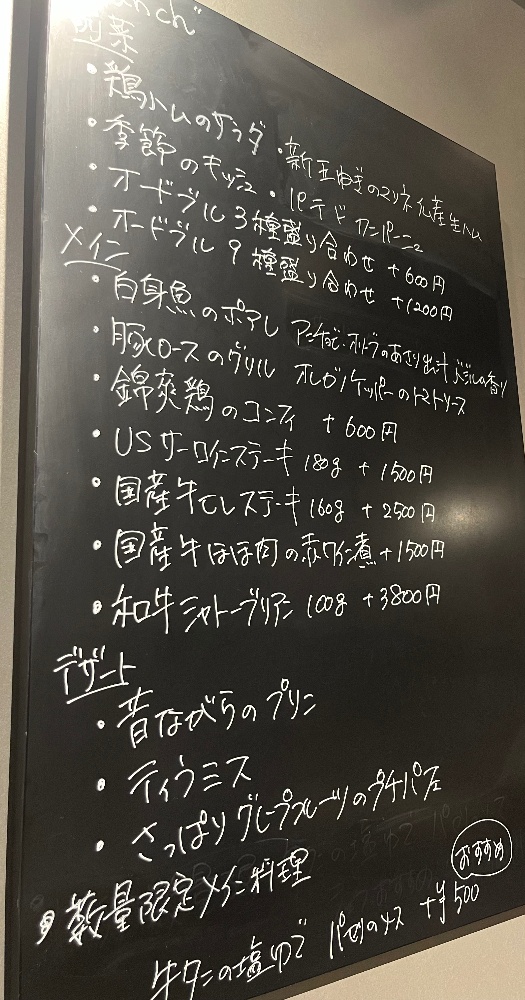 unch"
前菜
・鶏ハムのサラダ ・新玉ねぎのマリネ 産生ハム
・季節のキッシュ ・パテ ド カンパーニュ
・オードブル 3種盛り合わせ +600円
・オードブル 9種盛り合わせ +1200円
メイン
・白身魚のポアレ アンチョビ・オリーブのあさり出汁 バジルの香り
・豚ロースのグリル オレガノケッパーのトマトソース
・錦爽鶏のコンフィ +600円
・USサーロインステーキ 180g +1500円
・国産牛ヒレステーキ 160g +2500円
・国産牛ほほ肉の赤ワイン煮 +1500円
・和牛シャトーブリアン 100g +3800円
デザート
・昔ながらのプリン
・ティラミス
・さっぱりグレープフルーツのプチパフェ
・数量限定メイン料理
おすすめ
牛タンの塩ゆで パセリのソース +¥500